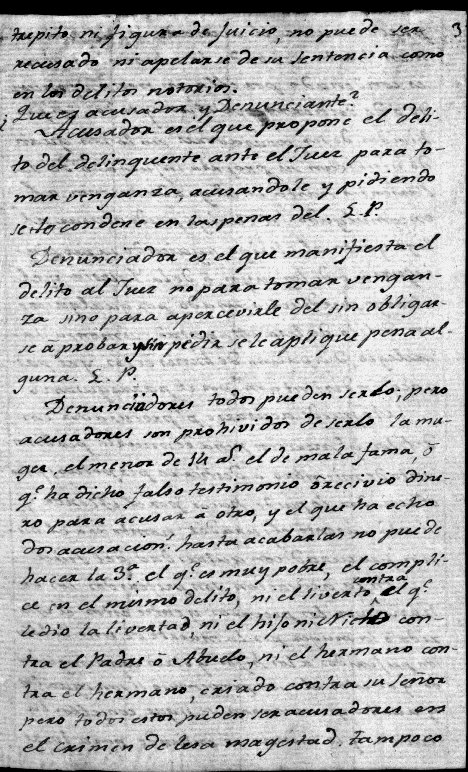 3
trepito ni figura de Juicio, no puede ser
recusado ni apelarse de su sentencia como
en los delitos notorios.
¿ Que es acusador y Denunciante?
Acusador es el que propone el deli-
to del delinquente ante el Juez para to-
mar venganza, acusandole y pidiendo
se lo condene en las penas del. L. P.
Denunciador es el que manifiesta el
delito al Juez no para tomar vengan-
za sino para apercevirle del sin obligar-
se a probar y sin pedir se le aplique pena al-
guna. L. P.
Denunciadores todos pueden serlo; pero
acusadores son prohividos de serlo la mu-
ger, el menor de 14 aˢ. el de mala fama, ó
qᵉ. ha dicho falso testimonio ó recivio dine-
ro para acusar a otro, y el que ha echo
dos acusacion. hasta acabarlas no puede
hacer la 3ª. el qᵉ. es muy pobre, el compli-
ce en el mismo delito, ni el liverto contra el qᵉ.
le dio la livertad, ni el hijo ni Nieto con-
tra el Padre ó Abuelo, ni el hermano con-
tra el hermano, criado contra su señor
pero todos estos pueden ser acusadores en
el crimen de lesa magestad. tampoco